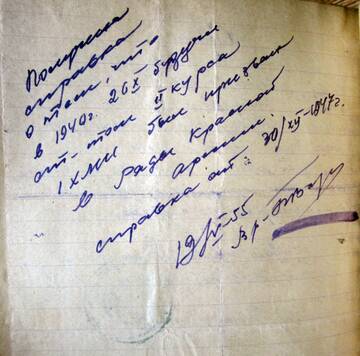 Получена
справка
о том, что
в 1940г. 26 X будучи
ст-том II курса
1 ХМИ был призван
в ряды Красной
Армии.
справка от 30/XII-1947г.
19/V-55
Вр-